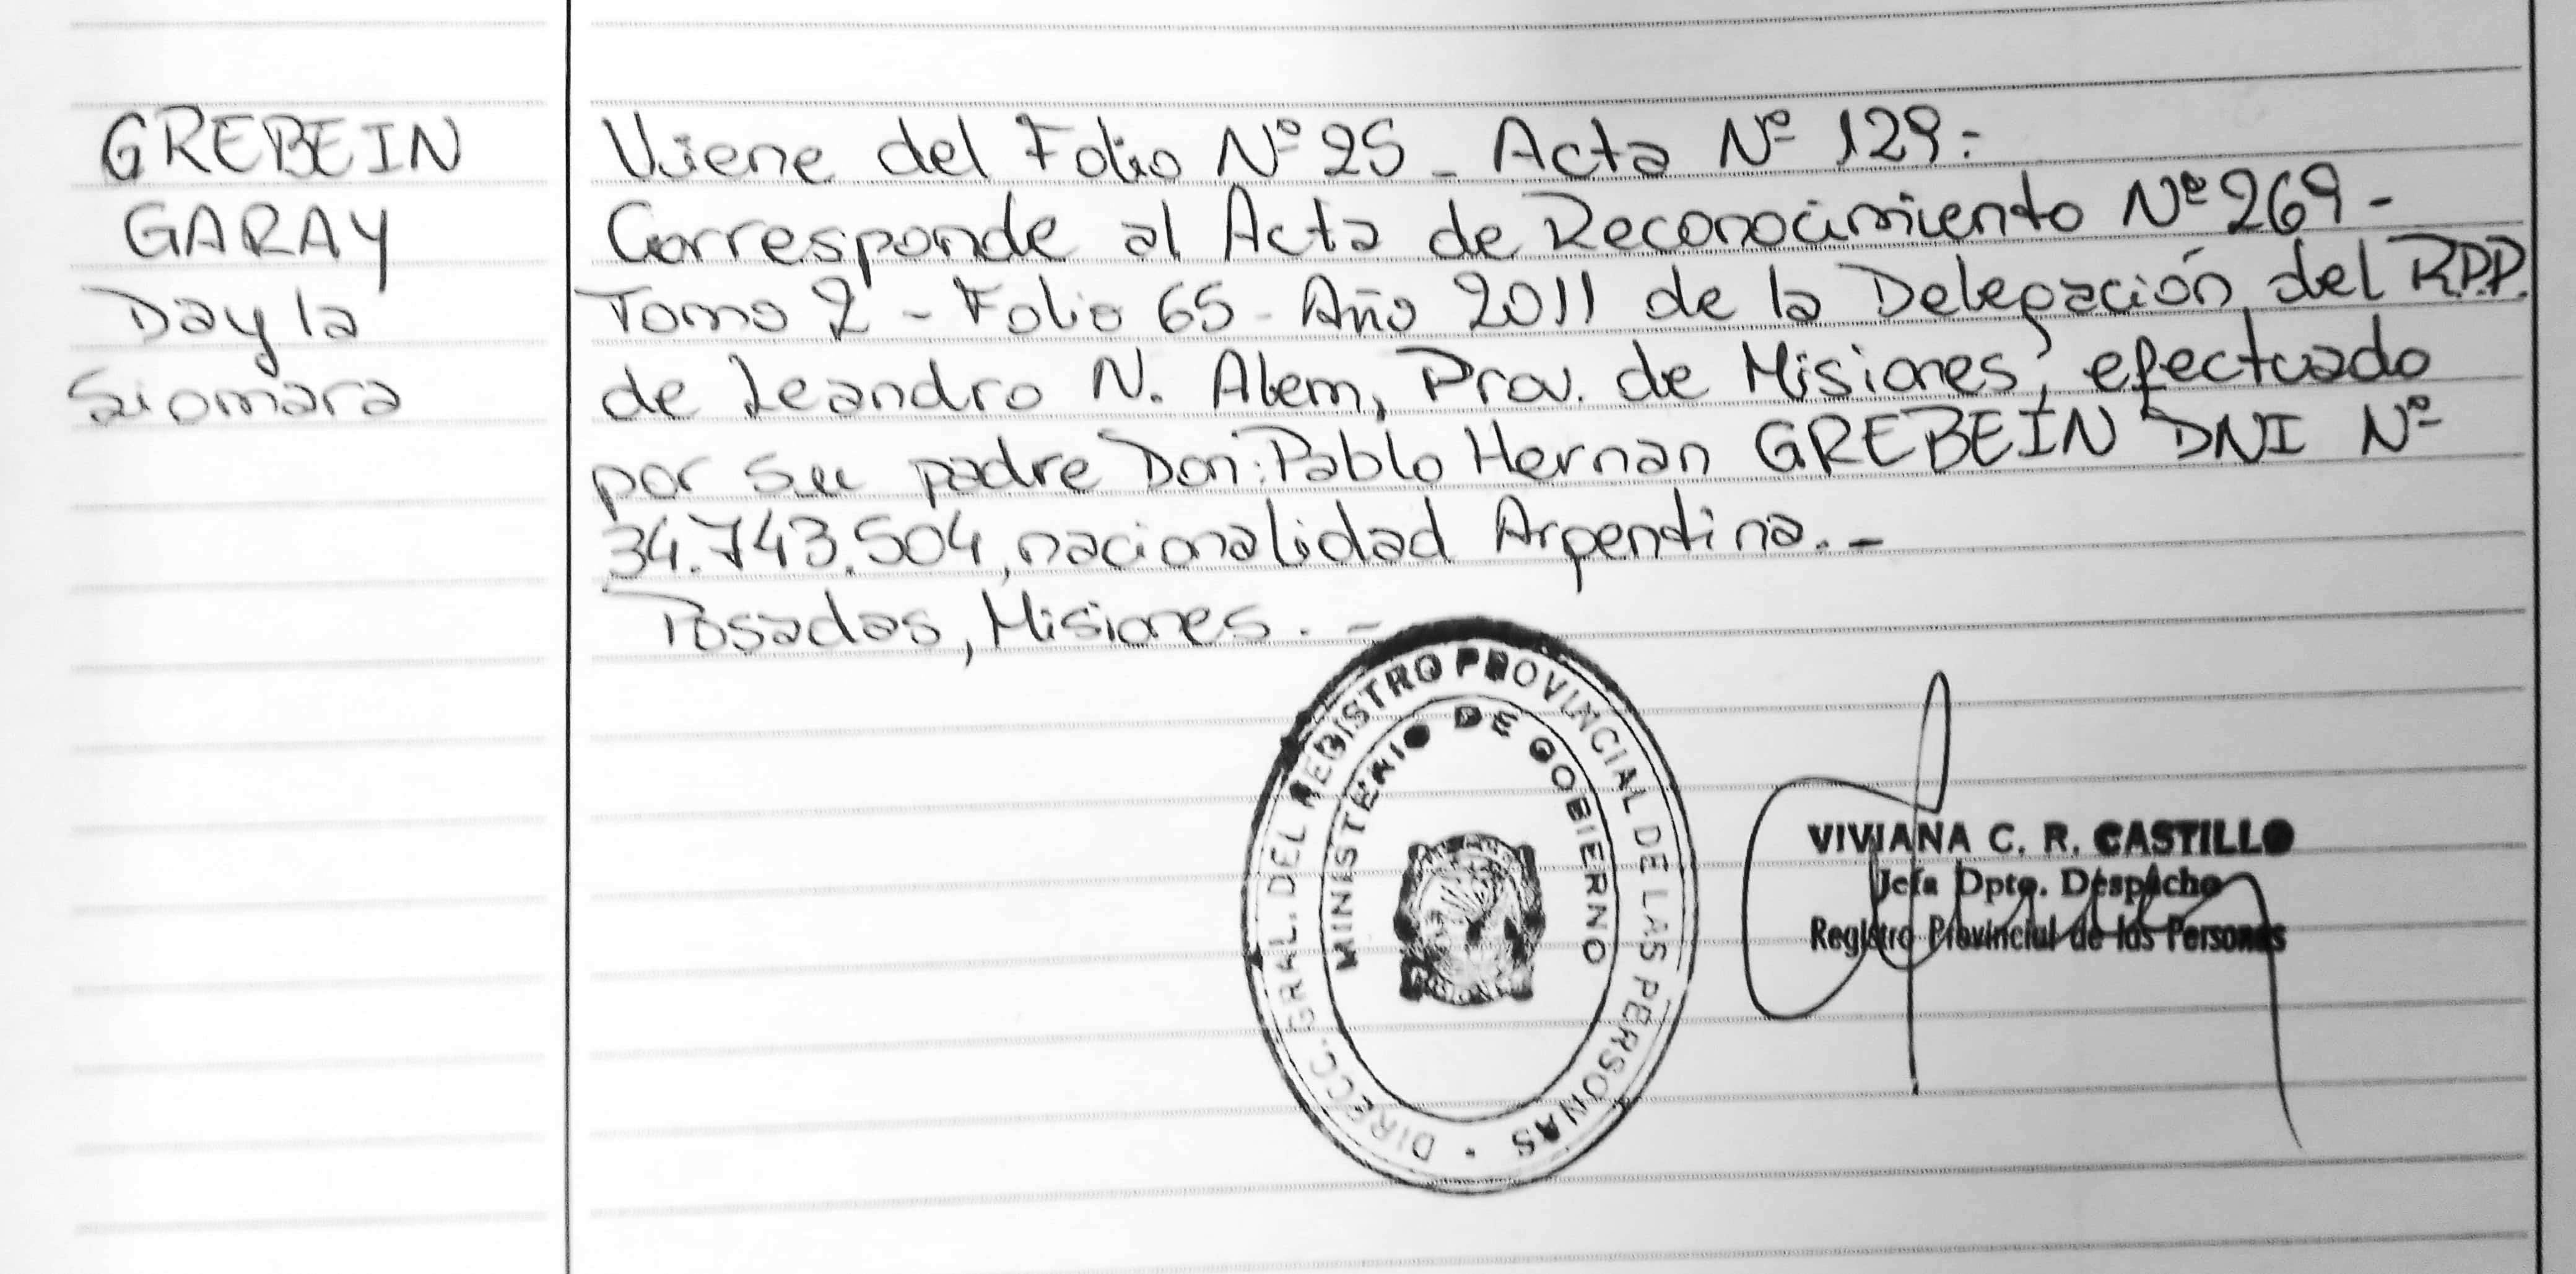 GREBEIN
GARAY
Dayla
Siomara
Viene del Folio Nº 25 - Acta Nº 129:
Corresponde al Acta de Reconocimiento Nº 269 -
Tomo 2 - Folio 65 - Año 2011 de la Delegación del R.P.P.
de Leandro N. Alem, Prov. de Misiones, efectuado
por su padre Don: Pablo Hernan GREBEIN DNI Nº
34.743.504, nacionalidad Argentina. -
Posadas, Misiones. -
DIRECC. GRAL. DEL REGISTRO PROVINCIAL DE LAS PERSONAS
MINISTERIO DE GOBIERNO
VIVIANA C. R. CASTILLO
Jefa Dpto. Despacho
Registro Provincial de las Personas